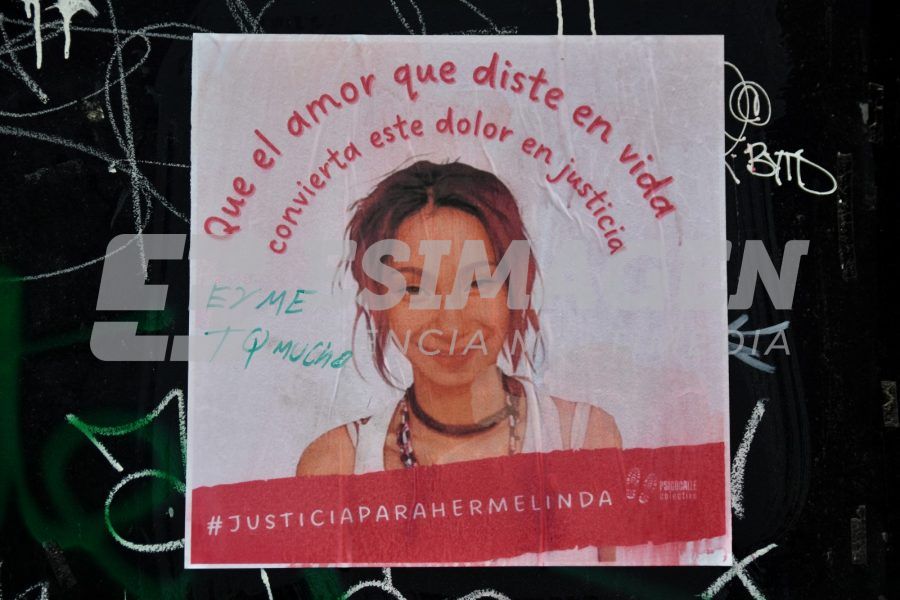 Que el amor que diste en vida
convierta este dolor en justicia
EYME
TQ MUCHO
#JUSTICIAPARAHERMELINDA
PSICOCALLE
colectivo
ESIMAGEN
ENCIA MULTIMEDIA